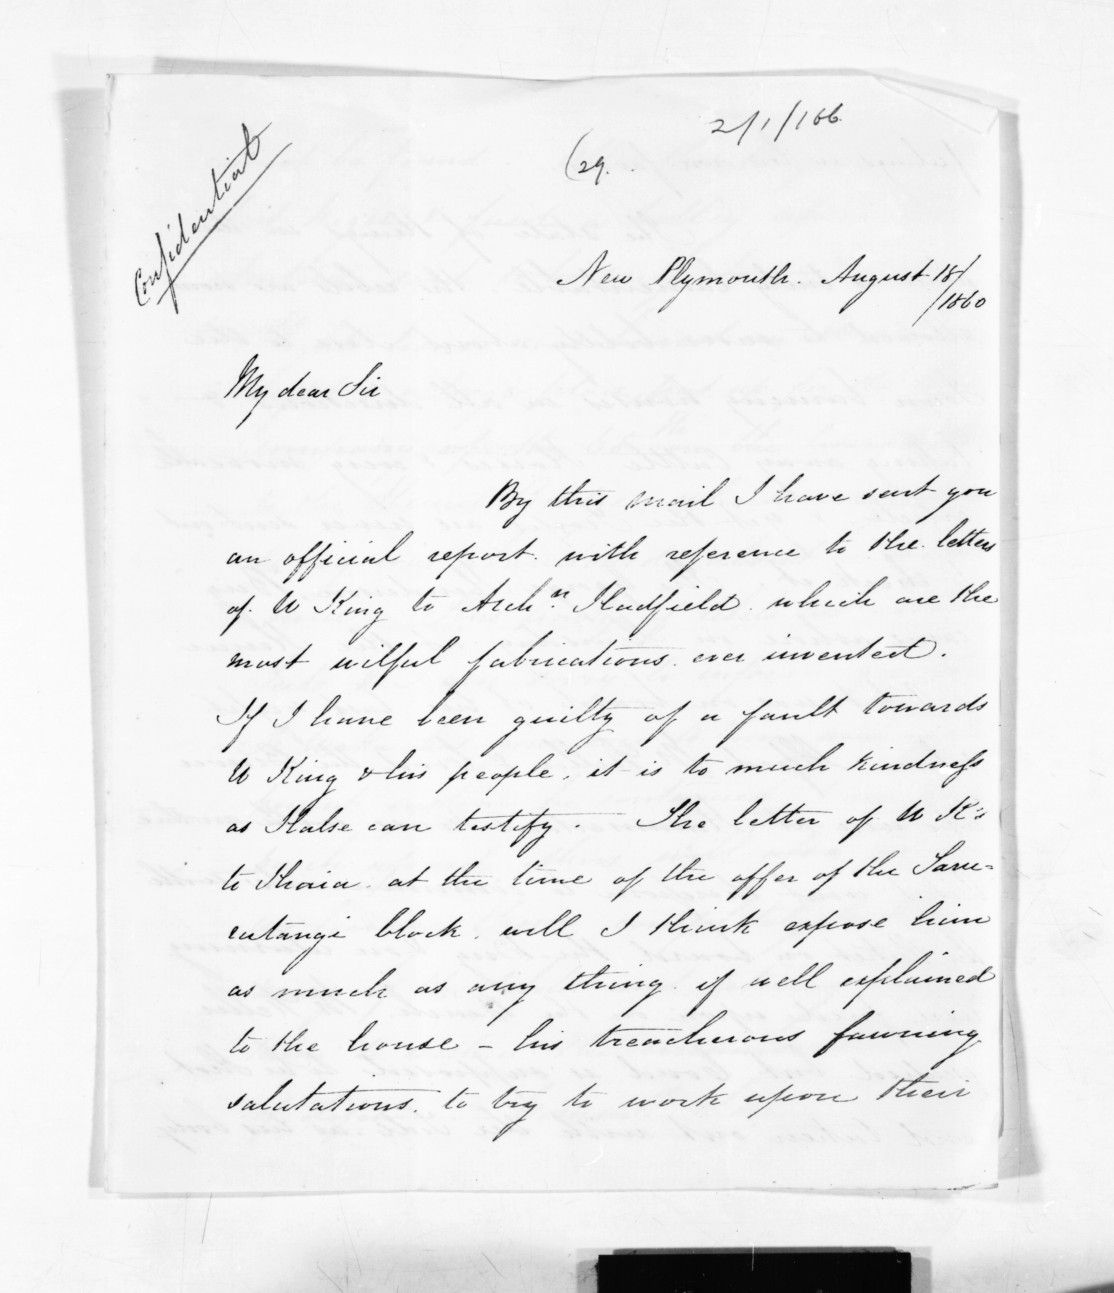 2/1/166
(29.
Confidential
New Plymouth. August 18/
/1860
My dear Sir
By this mail I have sent you
an official report. with reference to the letters
of. W King to Archn. Hadfield. which are the
most wilful fabrications. ever invented.
If I have been guilty of a fault towards
W King & his people, it is to much kindness
as Halse can testify. The letter of W K's
to Ihaia. at the time of the offer of the Taru=
rutangi block. will I think expose him
as much as any thing. if well explained
to the house - his treacherous fawning
salutations. to try to work upon their